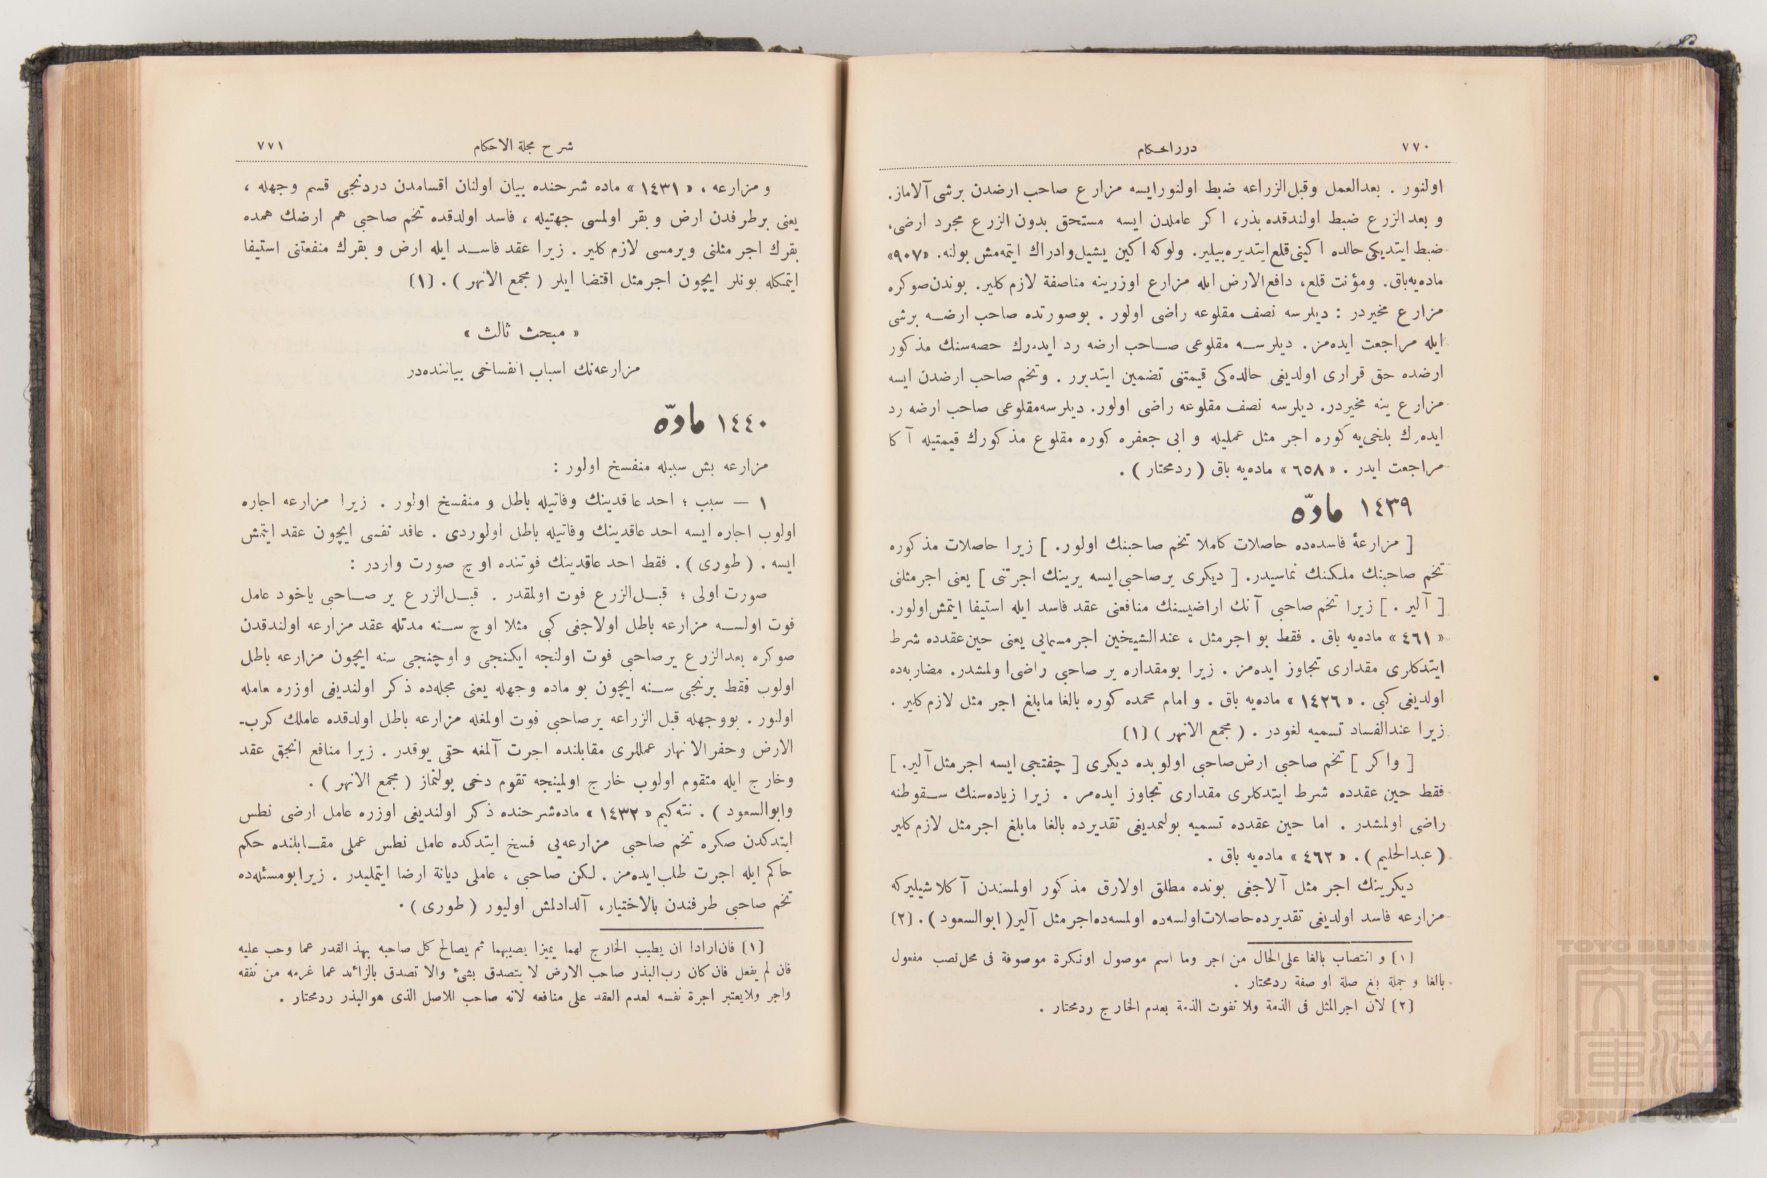 ٧٧٠
درر الحكام
اولنور . بعدالعمل وقبل‌الزراعه ضبط اولنورايسه مزارع صاحب ارضدن برشى آلاماز.
و بعدالزرع ضبط اولندقده بذر، اكر عاملدن ايسه مستحق بدون‌الزرع مجرد ارضى،
ضبط ايتديكى حالده اكينى قلع ايتديره‌بيلير. ولوكه اكين يشيل وادراك ايتمه‌مش بولنه. «٩٠٧»
ماده‌يه‌باق. ومؤنت قلع، دافع‌الارض ايله مزارع اوزرينه مناصفة لازم كلير. بوندن‌صوكره
مزارع مخيردر : ديلرسه نصف مقلوعه راضى اولور . بوصورتده صاحب ارضـه برشى
ايله مراجعت ايده‌مز. ديلرسـه مقلوعى صـاحب ارضه رد ايده‌رك حصه‌سنك مذكور
ارضده حق قرارى اولديغى حالده‌كى قيمتنى تضمين ايتديرر . وتخم صاحب ارضدن ايسه
مزارع ينه مخيردر. ديلرسه نصف مقلوعه راضى اولور. ديلرسه‌مقلوعى صاحب ارضه رد
ايده‌رك بلخى‌يه كوره اجر مثل عمليله و ابى جعفره كوره مقلوع مذكورك قيمتيله آكا
مراجعت ايدر . «٦٥٨» ماده‌يه باق ( ردمحتار ) .
١٤٣٩ مادّه
[ مزارعهٔ فاسده‌ده حاصلات كاملا تخم صاحبنك اولور. ] زيرا حاصلات مذكوره
تخم صاحبنك ملكنك نماسيدر. [ ديكرى يرصاحبى‌ايسه يرينك اجرتنى ] يعنى اجرمثلنى
[ آلير . ] زيرا تخم صاحبى آنك اراضيسنك منافعنى عقد فاسد ايله استيفا ايتمش‌اولور.
«٤٦١» ماده‌يه باق . فقط بو اجرمثل ، عندالشيخين اجرمسمايى يعنى حين‌عقدده شرط
ايتدكلرى مقدارى تجاوز ايده‌مز . زيرا بومقداره ير صاحبى راضى‌اولمشدر. مضاربه‌ده
اولديغى كبى . «١٤٢٦» ماده‌يه باق . و امام محمده كوره بالغا مابلغ اجر مثل لازم كلير .
زيرا عندالفساد تسميه لغودر . ( مجمع الانهر ) [١]
[ واكر ] تخم صاحبى ارض‌صاحبى اولوبده ديكرى [ چفتجى ايسه اجرمثل آلير. ]
فقط حين عقدده شرط ايتدكلرى مقدارى تجاوز ايده‌مز . زيرا زياده‌سنك سـقوطنه
راضى اولمشدر . اما حين عقدده تسميه بولنمديغى تقديرده بالغا مابلغ اجرمثل لازم‌كلير
( عبدالحليم ) . «٤٦٢» ماده‌يه باق .
ديكرينك اجر مثل آلاجغى بونده مطلق اولارق مذكور اولمسندن آكلاشيليركه
مزارعه فاسد اولديغى تقديرده حاصلات‌اولسه‌ده اولمسه‌ده‌اجرمثل آلير( ابوالسعود ) . [٢]
[١] و انتصاب بالغا على‌الحال من اجر وما اسم موصول اونكرة موصوفة فى محل‌نصب مفعول
بالغا و جملة بلغ صلة او صفة ردمحتار .
[٢] لأن اجرالمثل فى الذمة ولا تفوت الذمة بعدم الخارج ردمحتار .
شرح مجلة الاحكام
٧٧١
و مزارعه ، «١٤٣١» ماده شرحنده بيان اولنان اقسامدن دردنجى قسم وجهله ،
يعنى برطرفدن ارض و بقر اولمسى جهتيله ، فاسد اولدقده تخم صاحبى هم ارضك همده
بقرك اجر مثلنى ويرمسى لازم كلير . زيرا عقد فاسـد ايله ارض و بقرك منفعتنى استيفا
ايتمكله بونلر ايچون اجرمثل اقتضا ايلر ( مجمع الانهر ) . [١]
« مبحث ثالث »
مزارعه‌نك اسباب انفساخى بياننده‌در
١٤٤٠ مادّه
مزارعه بش سببله منفسخ اولور :
١ — سبب ؛ احد عاقدينك وفاتيله باطل و منفسخ اولور . زيرا مزارعه اجاره
اولوب اجاره ايسه احد عاقدينك وفاتيله باطل اولوردى . عاقد نفسى ايچون عقد ايتمش
ايسه . ( طورى ) . فقط احد عاقدينك فوتنده اوچ صورت واردر :
صورت اولى ؛ قبـل‌الزرع فوت اولمقدر . قبـل‌الزرع ير صـاحبى ياخود عامل
فوت اولسـه مزارعه باطل اولاجغى كبى مثلا اوچ سـنه مدتله عقد مزارعه اولندقدن
صوكره بعدالزرع يرصاحبى فوت اولنجه ايكنجى و اوچنجى سنه ايچون مزارعه باطل
اولوب فقط برنجى سـنه ايچون بو ماده وجهله يعنى مجله‌ده ذكر اولنديغى اوزره عامله
اولنور . بووجهله قبل الزراعه يرصاحبى فوت اولمغله مزارعه باطل اولدقده عاملك كرب-
الارض وحفرالانهار عمللرى مقابلنده اجرت آلمغه حقى يوقدر . زيرا منافع انجق عقد
وخارج ايله متقوم اولوب خارج اولمينجه تقوم دخى بولنماز ( مجمع الانهر ) .
وابوالسعود ) . نته‌كيم «١٤٣٢» ماده‌شرحنده ذكر اولنديغى اوزره عامل ارضى نطس
ايتدكدن صكره تخم صاحبى مزارعه‌يى فسخ ايتدكده عامل نطس عملى مقـابلنده حكم
حاكم ايله اجرت طلب‌ايده‌مز . لكن صاحبى ، عاملى ديانة ارضا ايتمليدر . زيرابومسئله‌ده
تخم صاحبى طرفندن بالاختيار، آلدادلمش اوليور ( طورى ) .
[١] فان‌ارادا ان يطيب الخارج لهما يميزا نصيبهما ثم يصالح كل صاحبه بهذ القدر عما وجب عليه
فان لم يفعل فان‌كان رب‌البذر صاحب الارض لا يتصدق بشئ والا تصدق بالزائد عما غرمه من نفقه
واجر ولايعتبر اجرة نفسه لعدم العقد على منافعه لانه صاحب الاصل الذى هوالبذر ردمحتار .
TOYO BUNKO